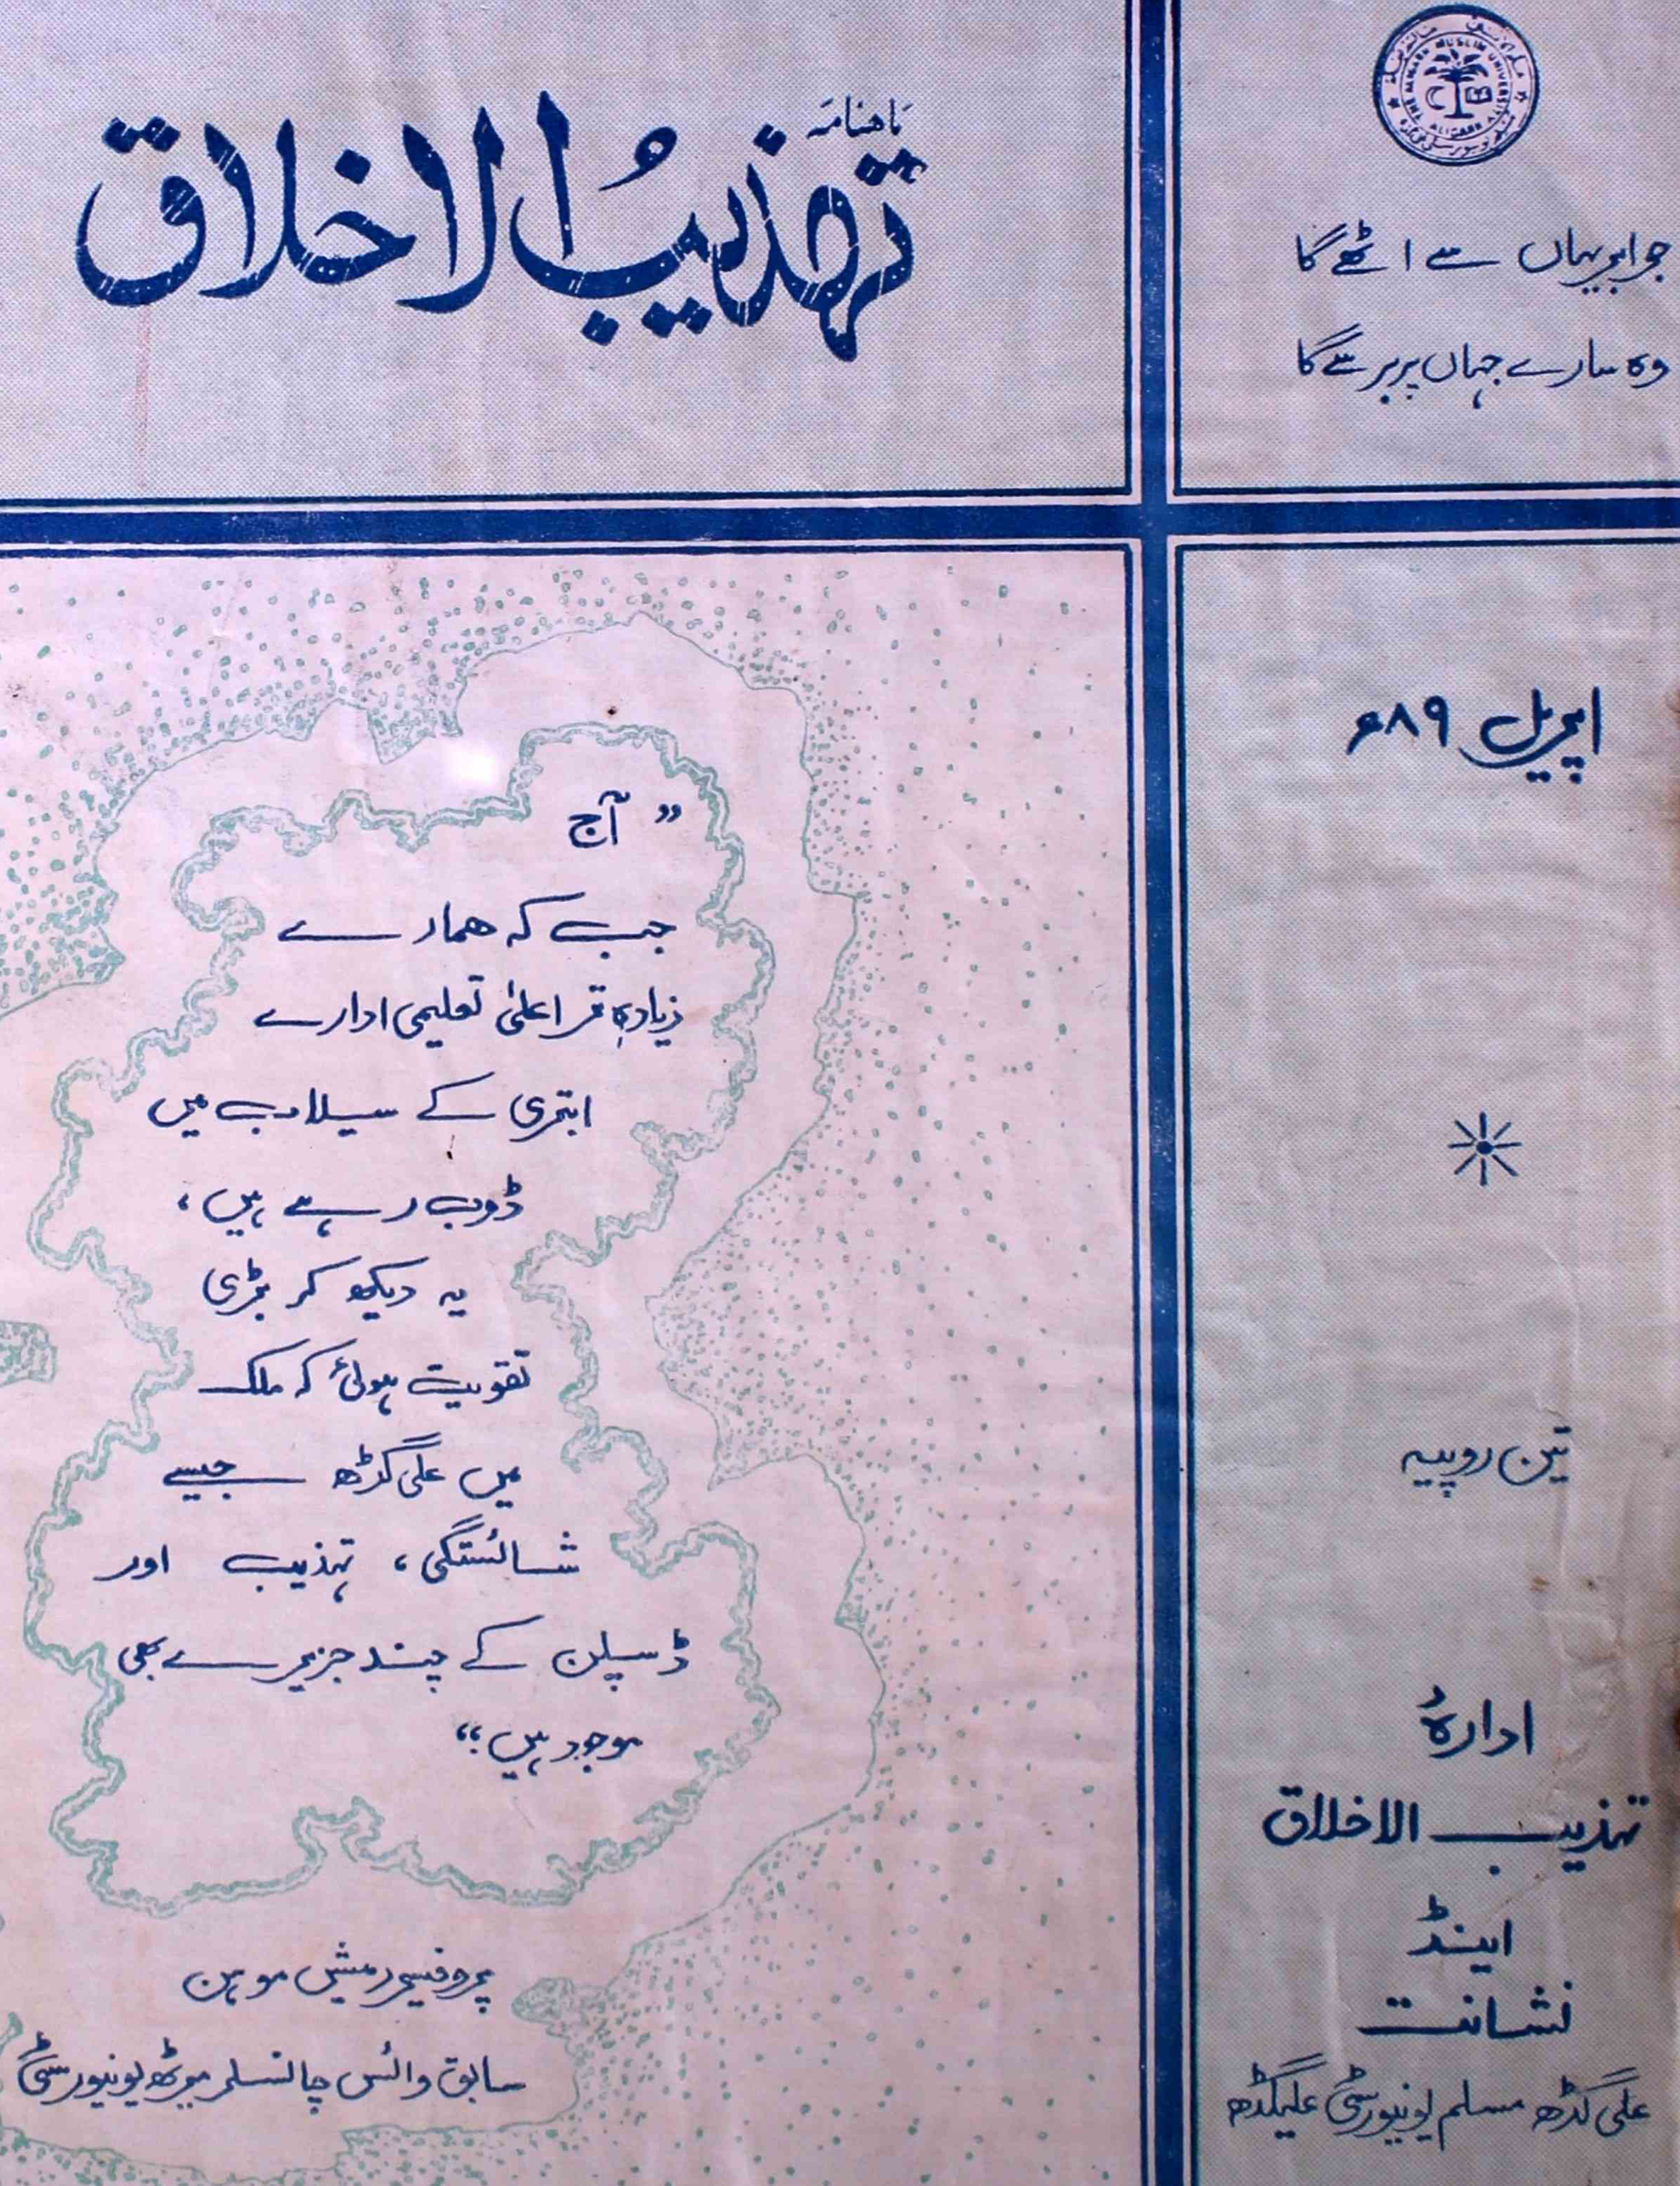 ماهنامہ
تهذیبُ الاخلاق
THE ALIGARH MUSLIM UNIVERSITY ALIGARH
جو ابر یہاں سے اٹھے گا
وہ سارے جہاں پر برسے گا
اپریل ۸۹ء
تین روپیہ
ادارۂ
تہذیب الاخلاق
اینڈ
نشانت
علی گڑھ مسلم یونیورسٹی علیگڈھ
” آج
جب کہ ہمارے
زیادہ تر اعلیٰ تعلیمی ادارے
ابتری کے سیلاب میں
ڈوب رہے ہیں،
یہ دیکھ کر بڑی
تقویت ہوئی کہ ملک
میں علی گڑھ جیسے
شائستگی، تہذیب اور
ڈسپلن کے چند جزیرے بھی
موجود ہیں“
پروفیسر رمیش موہن
سابق وائس چانسلر میرٹھ یونیورسٹی